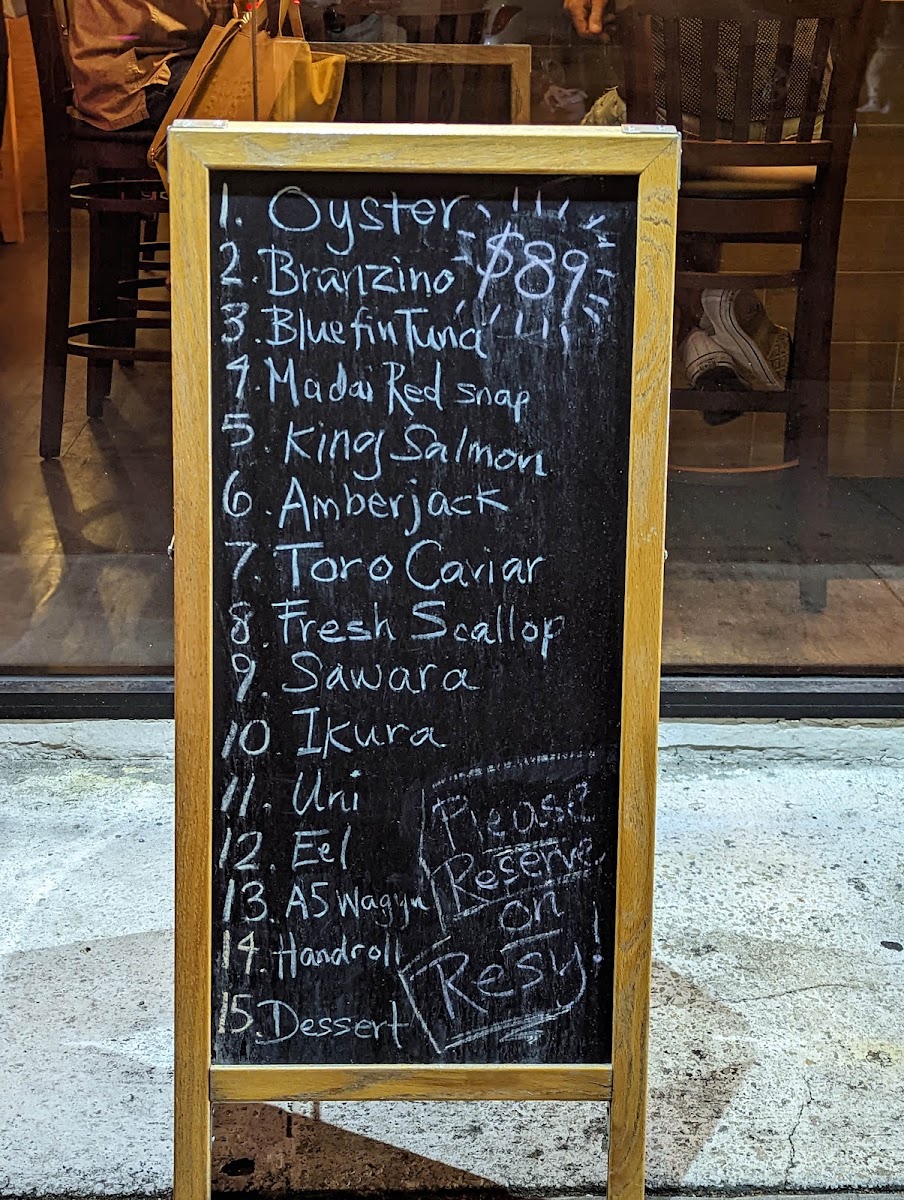 1. Oyster
$89
2. Branzino
3. Bluefin Tuna
4. Madai Red snap
5 King Salmon
6. Amberjack
7. Toro Caviar
8. Fresh Scallop
9. Sawara
10. Ikura
11. Uni
12. Eel
13. A5 Wagyu
14. Handroll
15. Dessert
Please
Reserve
on
Resy!